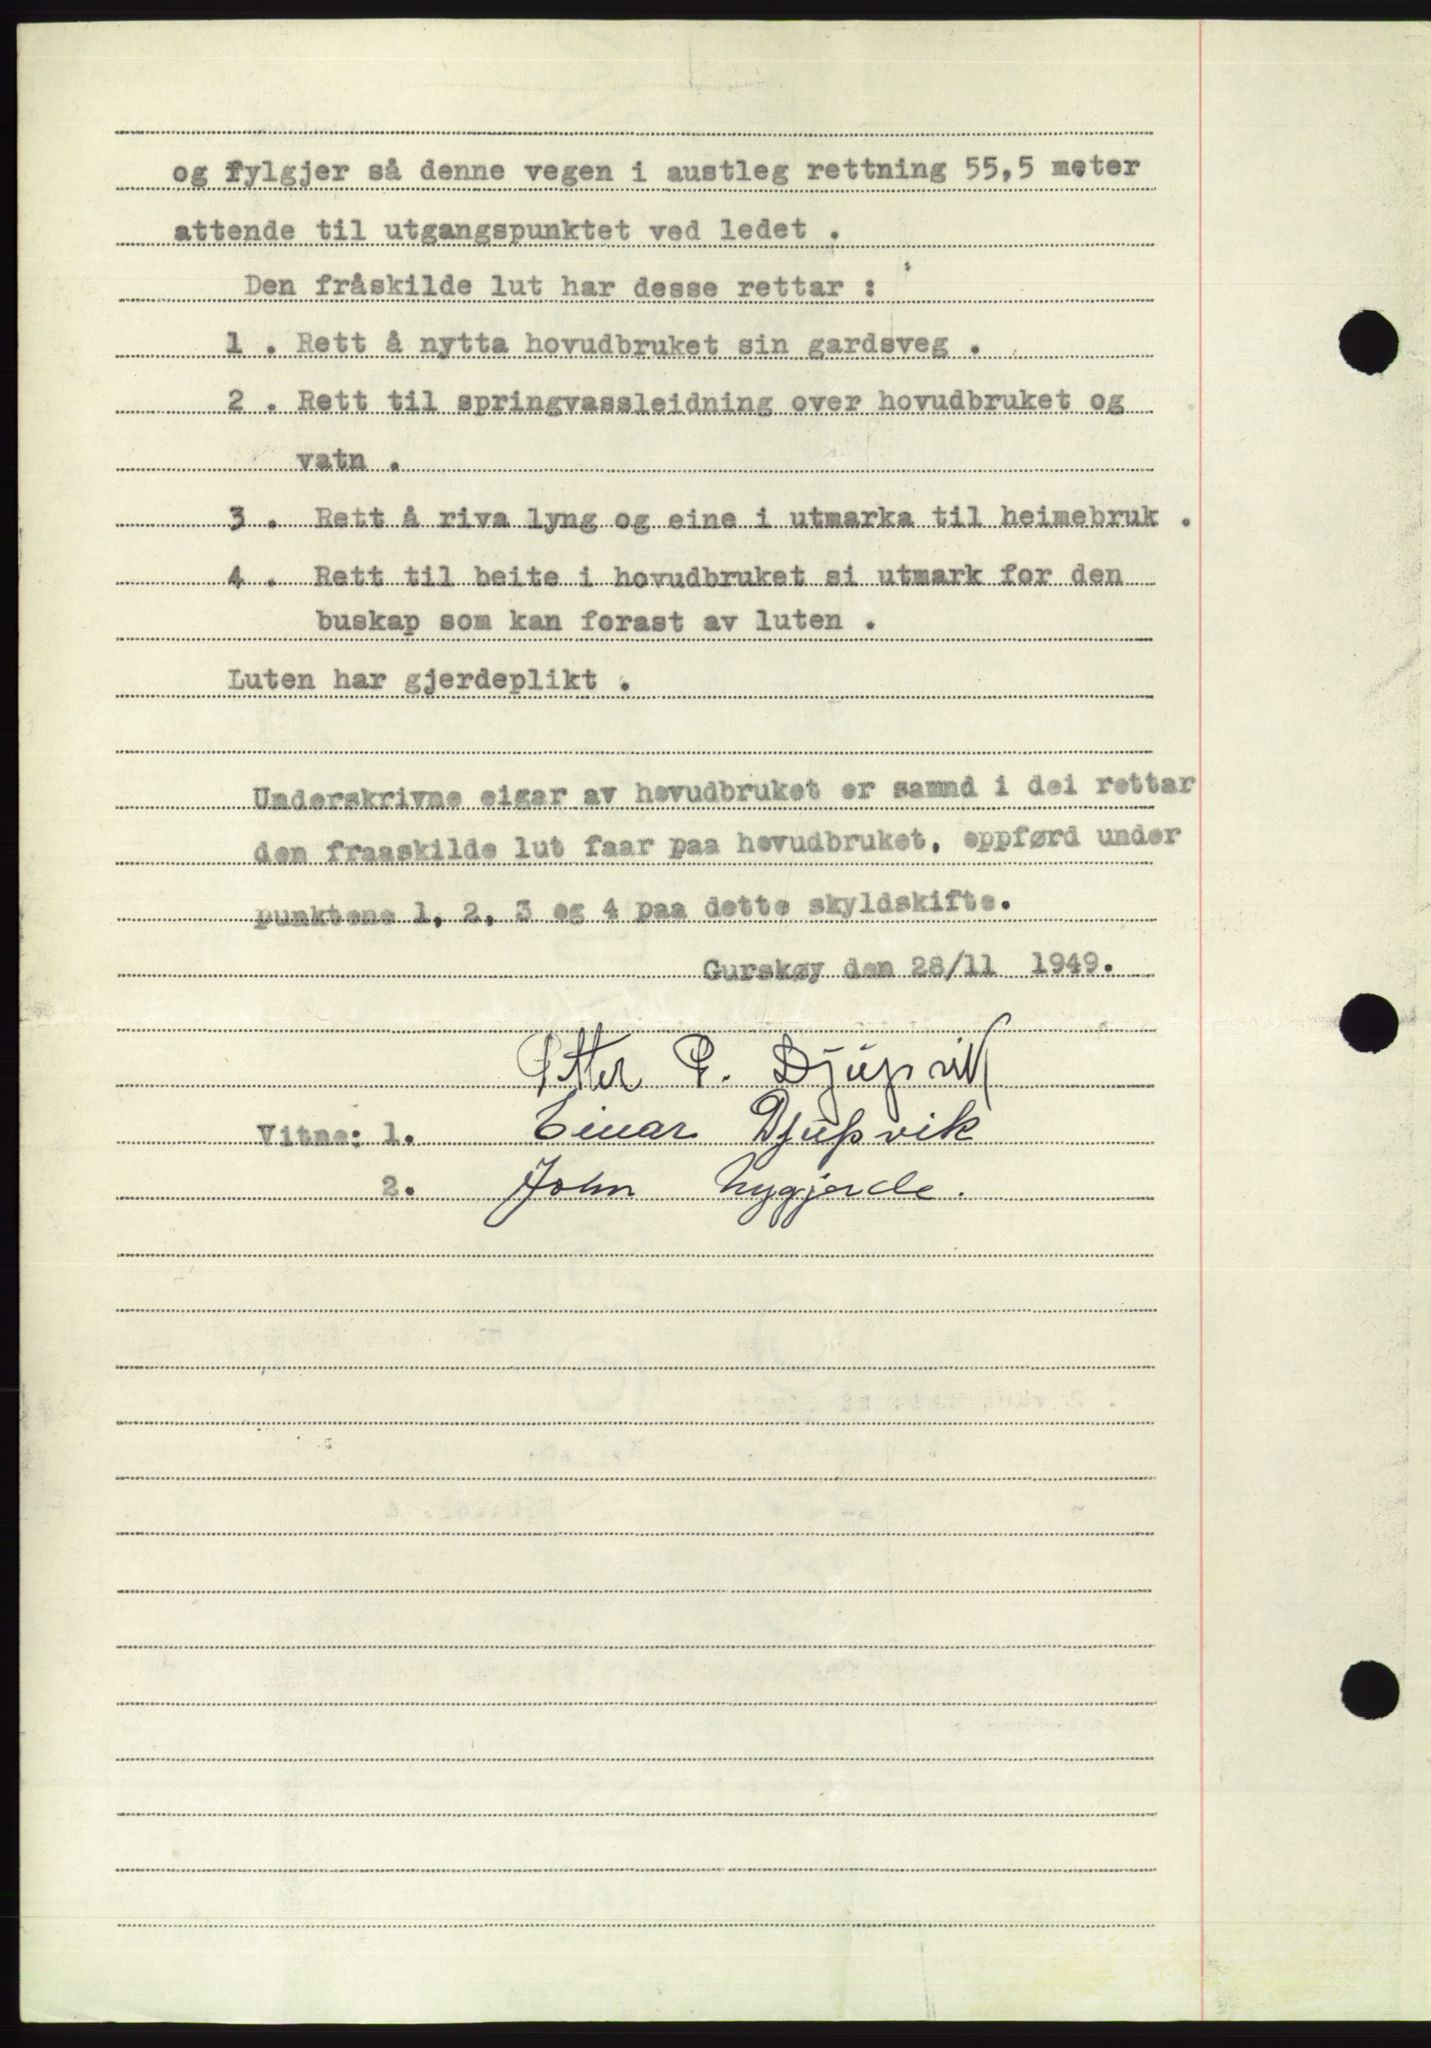 og fylgjer så denne vegen i austleg rettning 55,5 meter
attende til utgangspunktet ved ledet .
Den fråskilde lut har desse rettar :
1 . Rett å nytta hovudbruket sin gardsveg .
2 . Rett til springvassleidning over hovudbruket og
vatn .
3 . Rett å riva lyng og eine i utmarka til heimebruk .
4 . Rett til beite i hovudbruket si utmark for den
buskap som kan forast av luten .
Luten har gjerdeplikt .
Underskrivne eigar av hovudbruket er samnd i dei rettar
den fraaskilde lut faar paa hovudbruket, oppførd under
punktene 1, 2, 3 og 4 paa dette skyldskifte.
Gurskøy den 28/11 1949.
Otter P. Djúpvik
Vitne: 1. Einar Djúpvik
2. John Nygjerde.